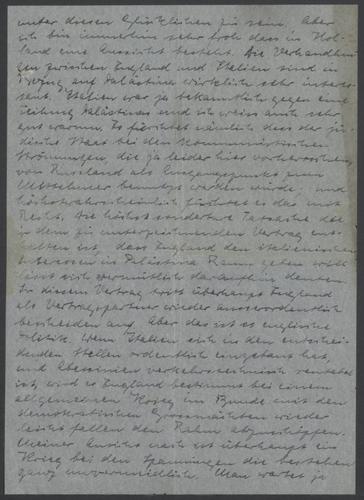 unter diesen Glücklichen zu sein. Aber
ich bin immerhin sehr froh dass in Hol-
land eine Aussicht besteht. Die Verhandlun-
gen zwischen England und Italien sind in
Bezug auf Palästina wirklich sehr interes-
sant. Italien war ja bekanntlich gegen eine
Teilung Palästinas und ich weiss auch sehr
gut warum. Es fürchtet nämlich dass der jü-
dische Staat bei den kommunistischen
Strömungen, die ja leider hier vorherrschen,
von Russland als Ausgangspunkt zum
Mittelmeer benutzt werden würde, und
höchstwahrscheinlich fürchtet es das mit
Recht. Die höchst sonderbare Tatsache die
in dem zu unterzeichnenden Vertrag ent-
halten ist, dass England den italienischen
Interessen in Palästina Raum geben will
lässt sich vermutlich daraufhin deuten.
In diesem Vertrag tritt überhaupt England
als Vertragspartner wieder ausserordentlich
bescheiden auf. Aber das ist es englische
Politik. Wenn Italien sich in den entschei-
denden Stellen ordentlich eingebaut hat,
und Abessinien verkehrstechnisch
ist, wird es England bestimmt bei einem
allgemeinen Krieg im Bunde mit den
demokratischen Grossmächten wieder
leicht fallen den Rahm abzuschöpfen.
Meiner Ansicht nach ist überhaupt ein
Krieg bei den Spannungen die bestehen
ganz unvermeidlich. Man wartet ja